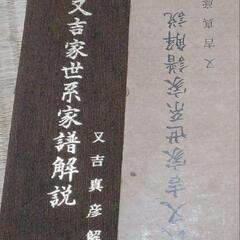 又吉家世系家譜解説
又吉真彦解
又吉真彦
又吉家世系家譜解説